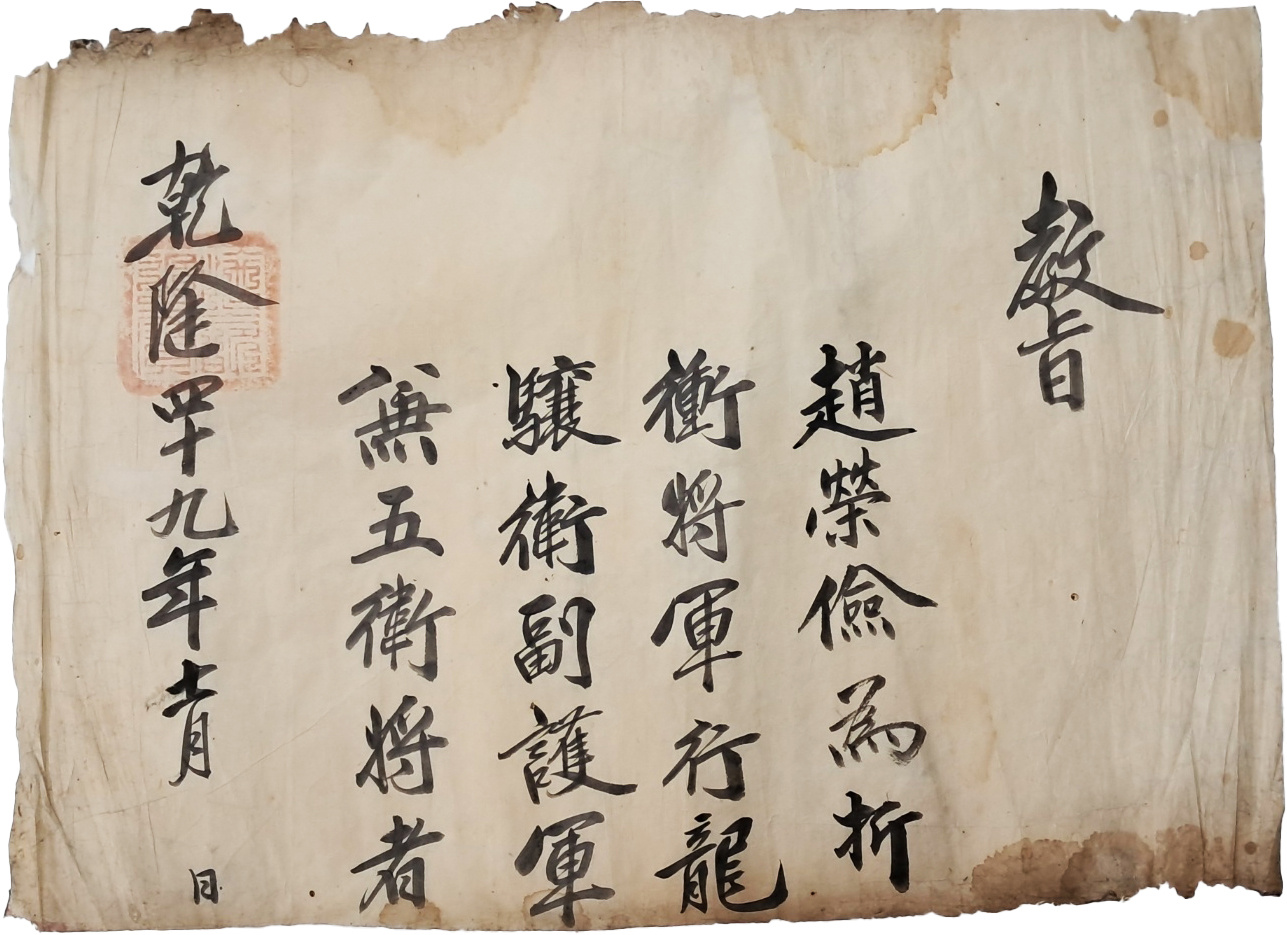 教旨
趙榮儉為折
衝將軍行龍
驤衛副護軍
兼五衛將者
乾隆四十九年十一月
日